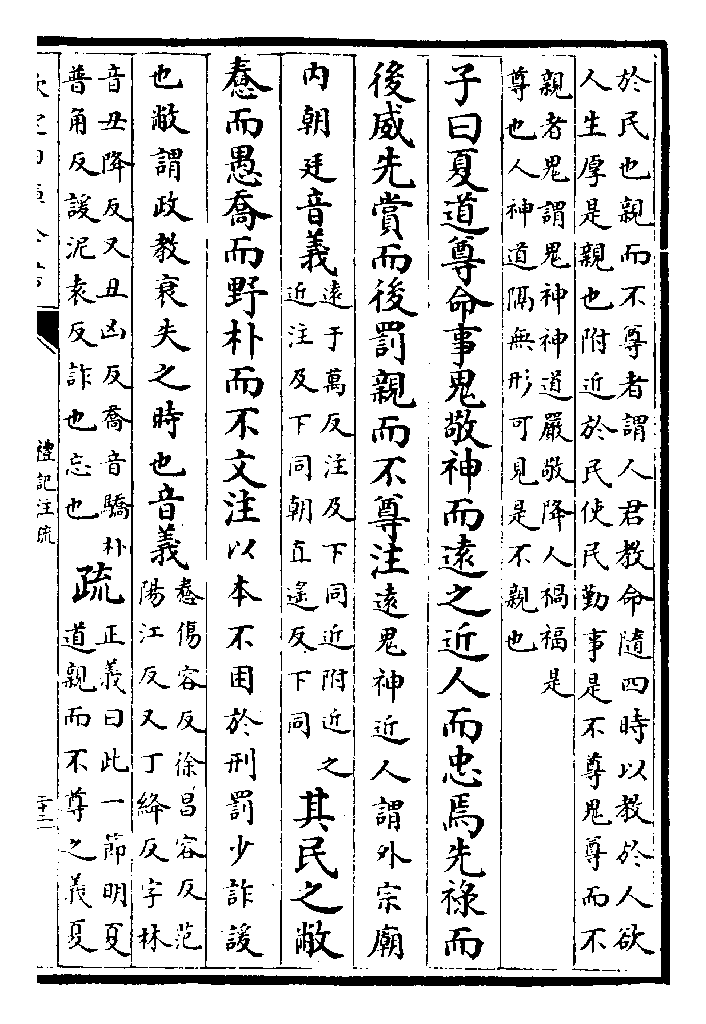 於民也親而不尊者謂人君教命隨四時以教於人欲
人生厚是親也附近於民使民勤事是不尊鬼尊而不
親者鬼謂鬼神神道嚴敬降人禍福是
尊也人神道隔無形可見是不親也
子曰夏道尊命事鬼敬神而遠之近人而忠焉先祿而
後威先賞而後罰親而不尊注遠鬼神近人謂外宗廟
內朝廷音義
遠于萬反注及下同近附近之
近注及下同朝直遙反下同
其民之敝
惷而愚喬而野朴而不文注以本不困於刑罰少詐諼
也敝謂政教衰失之時也音義
惷傷容反徐昌容反范
陽江反又丁絳反字林
音丑降反又丑凶反喬音驕朴
普角反諼泥袁反詐也忘也
疏
正義曰此一節明夏
道親而不尊之義夏
禮記注疏